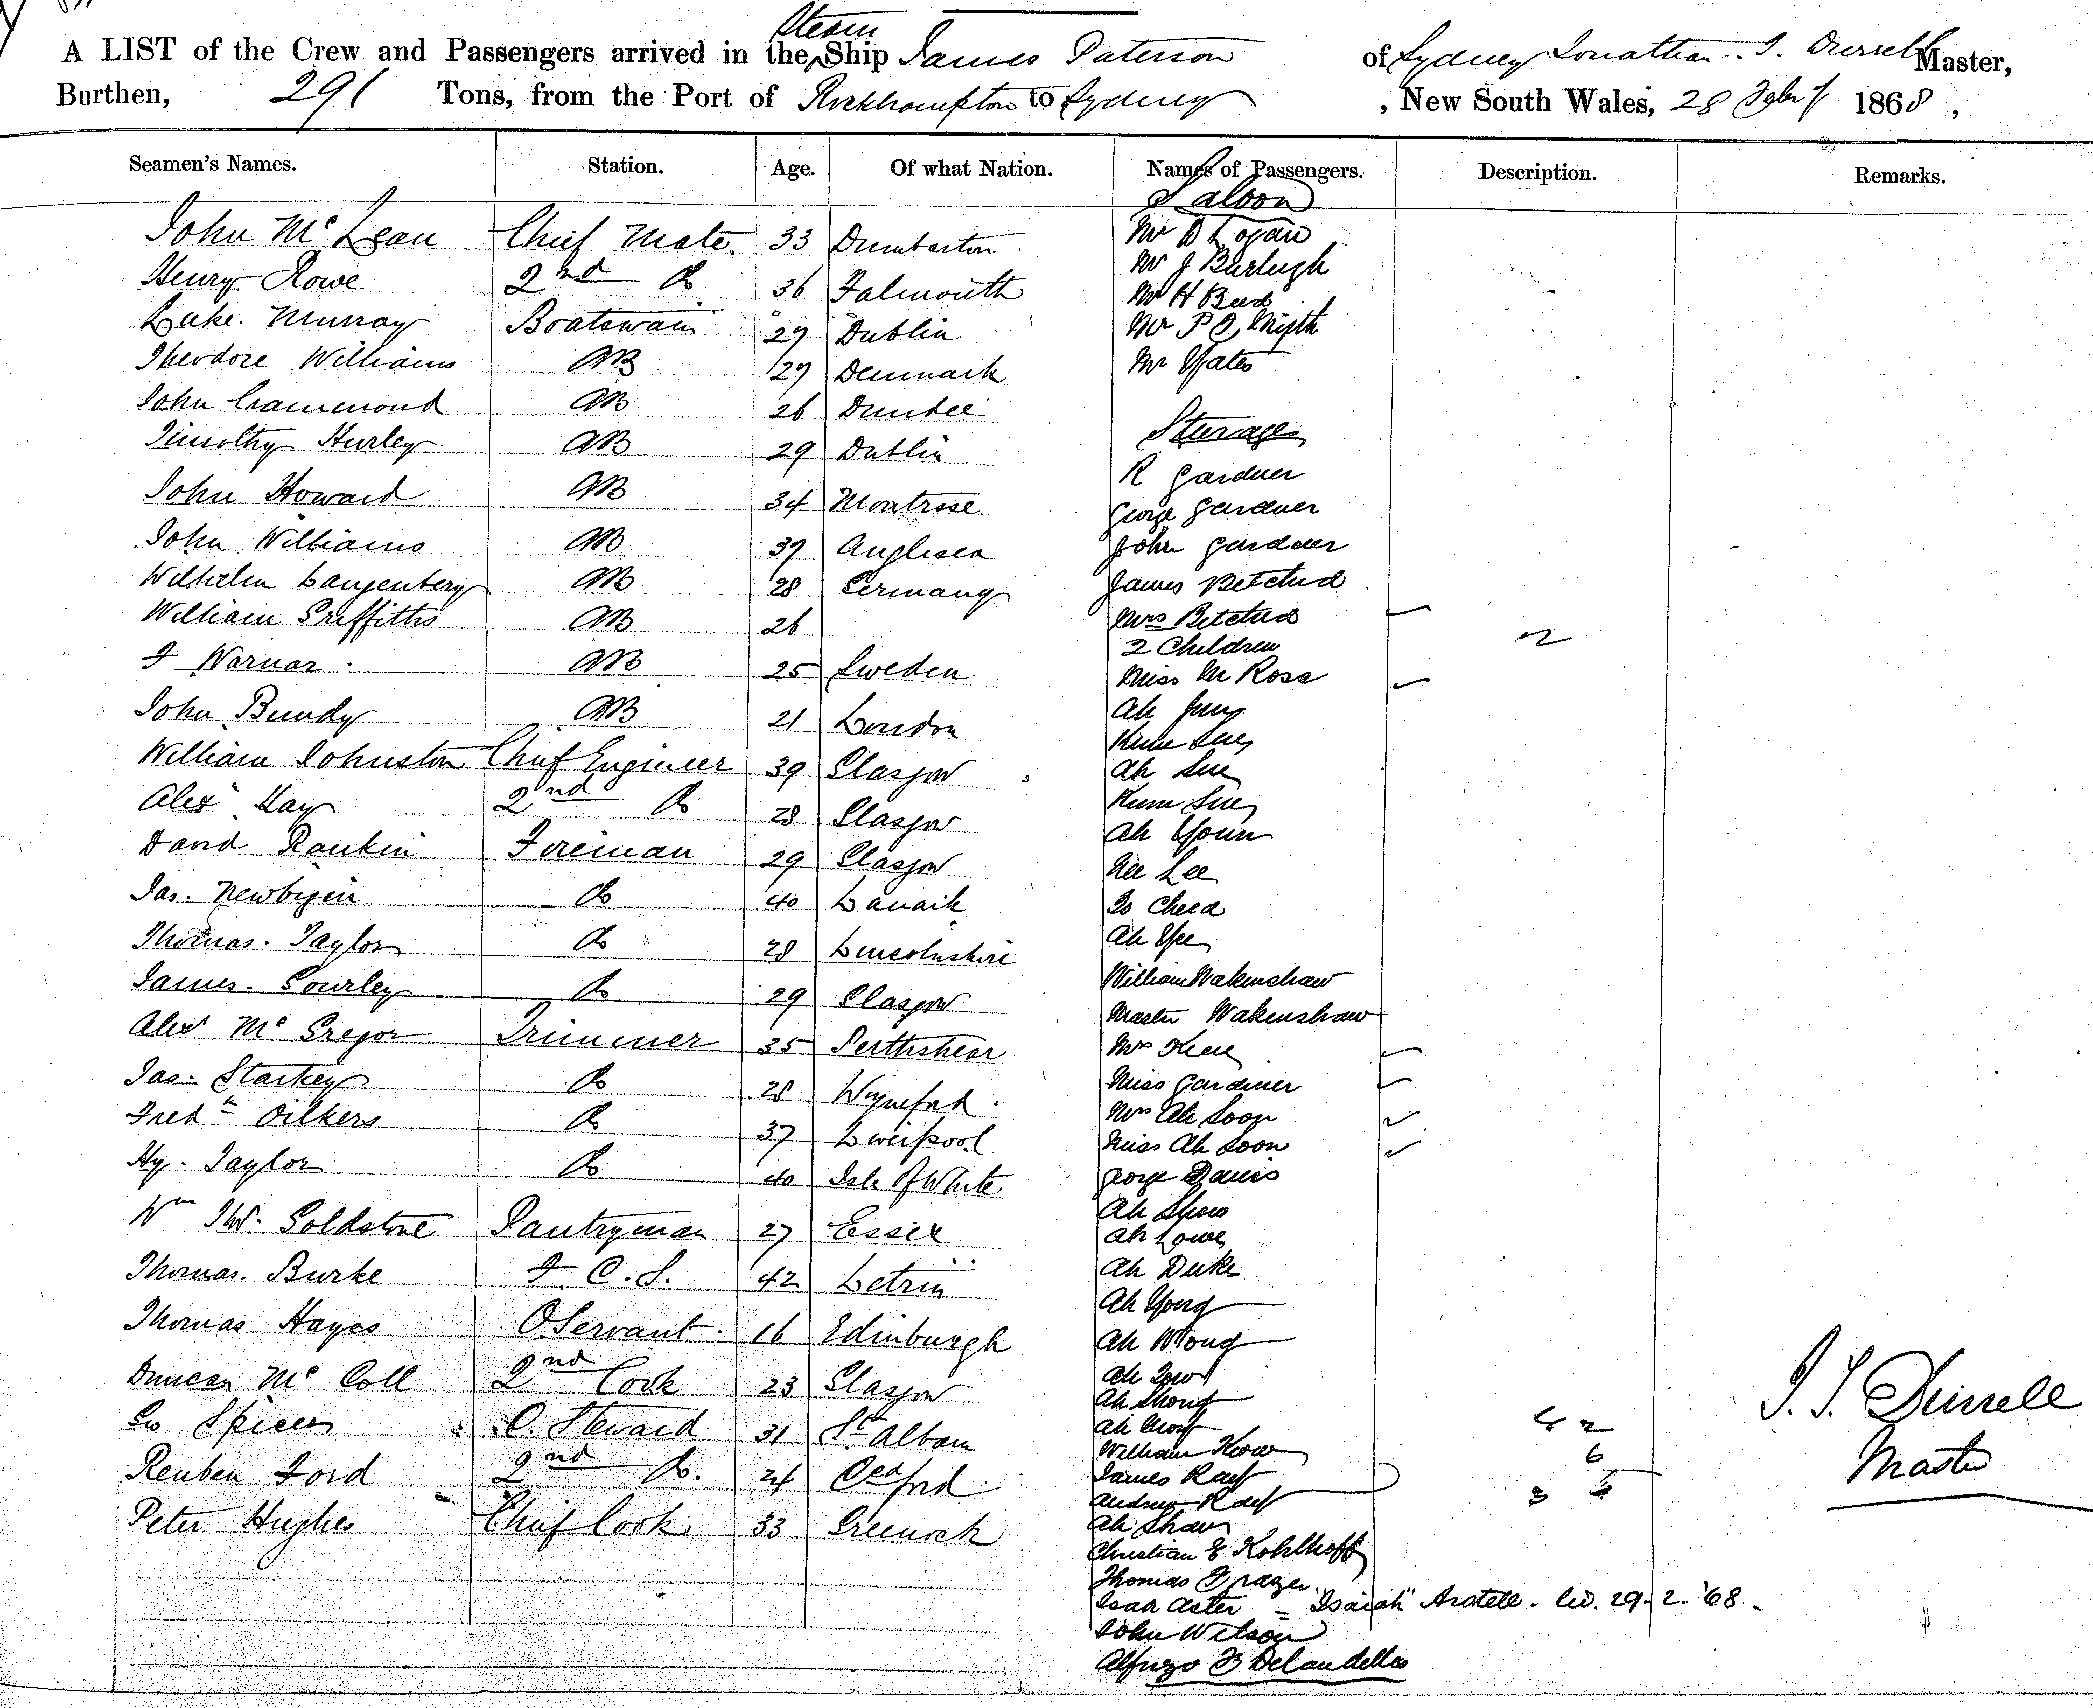 A LIST of the Crew and Passengers arrived in the Steam Ship James Paterson of Sydney Jonathan. S. Durrell Master,
Burthen, 291 Tons, from the Port of Rockhampton to Sydney, New South Wales, 28 1868,
Seamen's Names. Station. Age. Of what Nation. Names of Passengers. Description. Remarks.
Saloon
John Mc Lean Chief Mate. 33 Dumbarton Mr D Logan
Henry Rowe 2nd Do 36 Falmouth Mr J Burleigh
Mr H Beed
Luke. Murray Boatswain 29 Dublin Mr P
Theodore Williams AB 29 Denmark Mr Yates
John Crammond AB 26 Dundee
Timothy Hurley AB 29 Dublin Sturage
John Howard AB 34 Montrose R Gardner
George Gardner
John Williams AB 39 Anglisea John Gardner
Wilhelm Langenberg AB 28 Germany James Betchud
William Griffiths AB 26 Mrs Betchud
2 Children 2
F Warnar AB 25 Sweden Miss M Rose
John Bundy AB 21 London Ah
Sue
William Johnston Chief Engineer 39 Glasgow Ah Sue
Alexr Hay 2nd Do 28 Glasgow Kum Sue
Ah Youn
David Rankin Fireman 29 Glasgow Lee
Jas. Newbigin Do 40 Lanark Cheed
Thomas. Taylor Do 28 Lincolnshire Ah Yee
James. Gourley Do 29 Glasgow William Wakenshaw
Alexr Mc Gregor Trimmer 35 Perthshear Master Wakenshaw
Mrs
Jas. Starkey Do 28 Miss Gardiner
Fredk Oilkers Do 37 Liverpool Mrs Ah Soon
Miss Ah Soon
Hy. Taylor Do 40 Isle Of White George Davis
Wm Goldstone Pantryman 27 Essex Ah
Ah Lowe
Thomas. Burke F. C. S. 42 Letrim Ah Duke
Ah Yong
Thomas Hayes O Servant 16 Edinburgh Ah Wong
Duncan Mc Coll 2nd Cook 23 Glasgow Ah
Ah Shong
Geo Spicer C. Steward 31 St Alban Ah
William
6
Reuben Ford 2nd Do. 24 James
Andrew
Peter Hughes Chief Cook 33 Greenock Ah Shaw
Christian E Kohlhoff
Thomas Frazer
Isaa Aster = "Isaiah" Aratell. 29. 2. '68.
John Wilson
Alfnzo
J. S. Durrell
Master